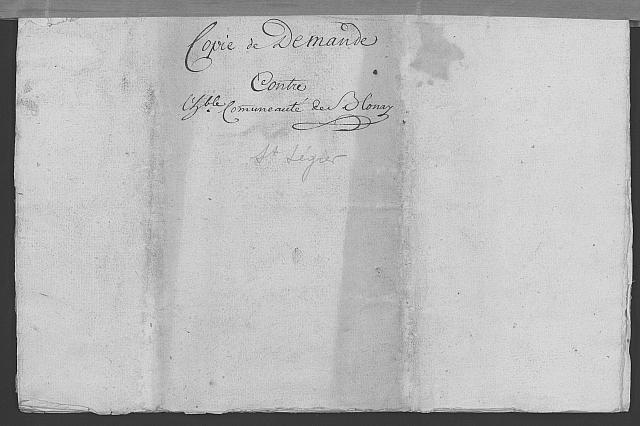 Copie de Demande
Contre
L'h.ble Comuneauté de Blonay
St Légier